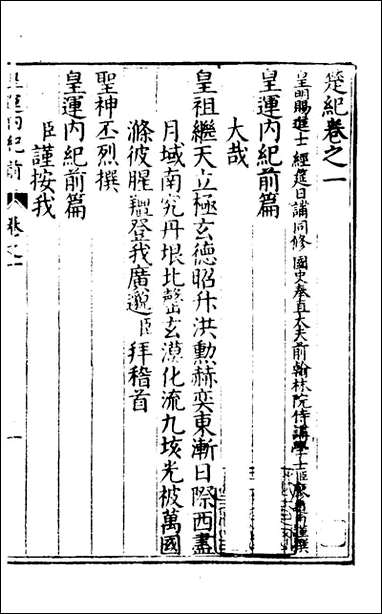 楚紀卷之一
皇明賜進士經筵日講同修國史奉直大夫前翰林院侍講學士臣廖道南謹撰
皇運內紀前篇
大哉
皇祖繼天立極玄德昭升洪勳赫奕東漸日際西盡
月域南究丹垠北罄玄漠化流九垓光被萬國
滌彼腥羶登我廣邈臣拜稽首
聖神丕烈撰
皇運內紀前篇
臣謹按我
皇運內紀前 卷之一 一